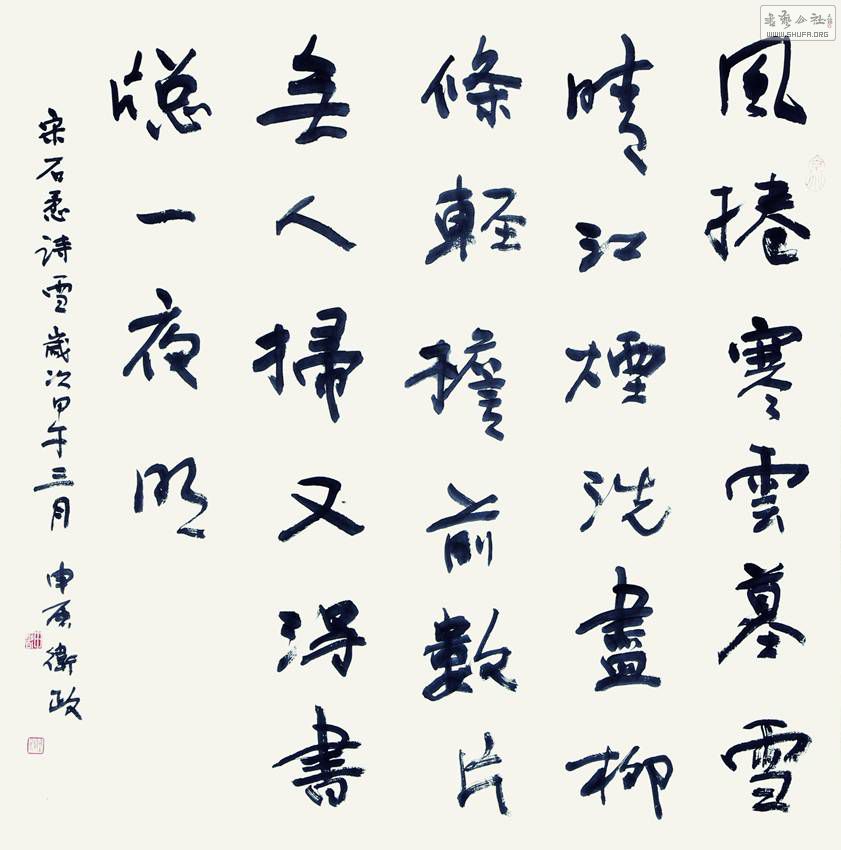 書藝公社
WWW.SHUFA.ORG
風捲寒雲墓雪
晴江煙洗盡柳
條輕檐前數片
無人掃又得書
牕一夜明
宋石悉詩雪歲次甲午三月 申原衛政